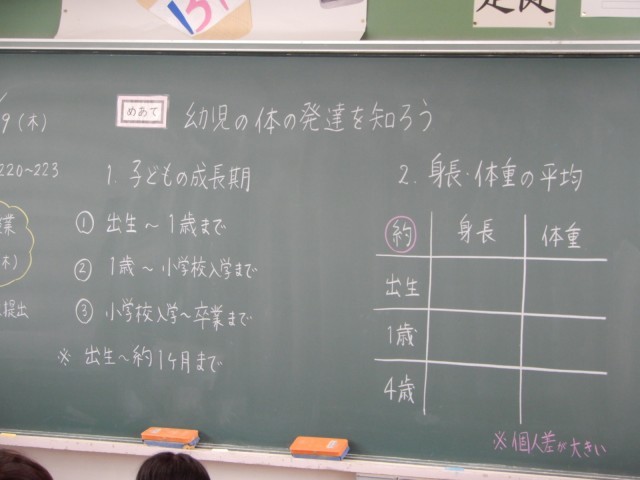 めあて 幼児の体の発達を知ろう
9(木)
220~223
業
木)
提出
1. 子どもの成長期
① 出生~1歳まで
② 1歳~小学校入学まで
③ 小学校入学~卒業まで
※ 出生~約1ヶ月まで
2. 身長・体重の平均
約 身長 体重
出生
1歳
4歳
※個人差が大きい